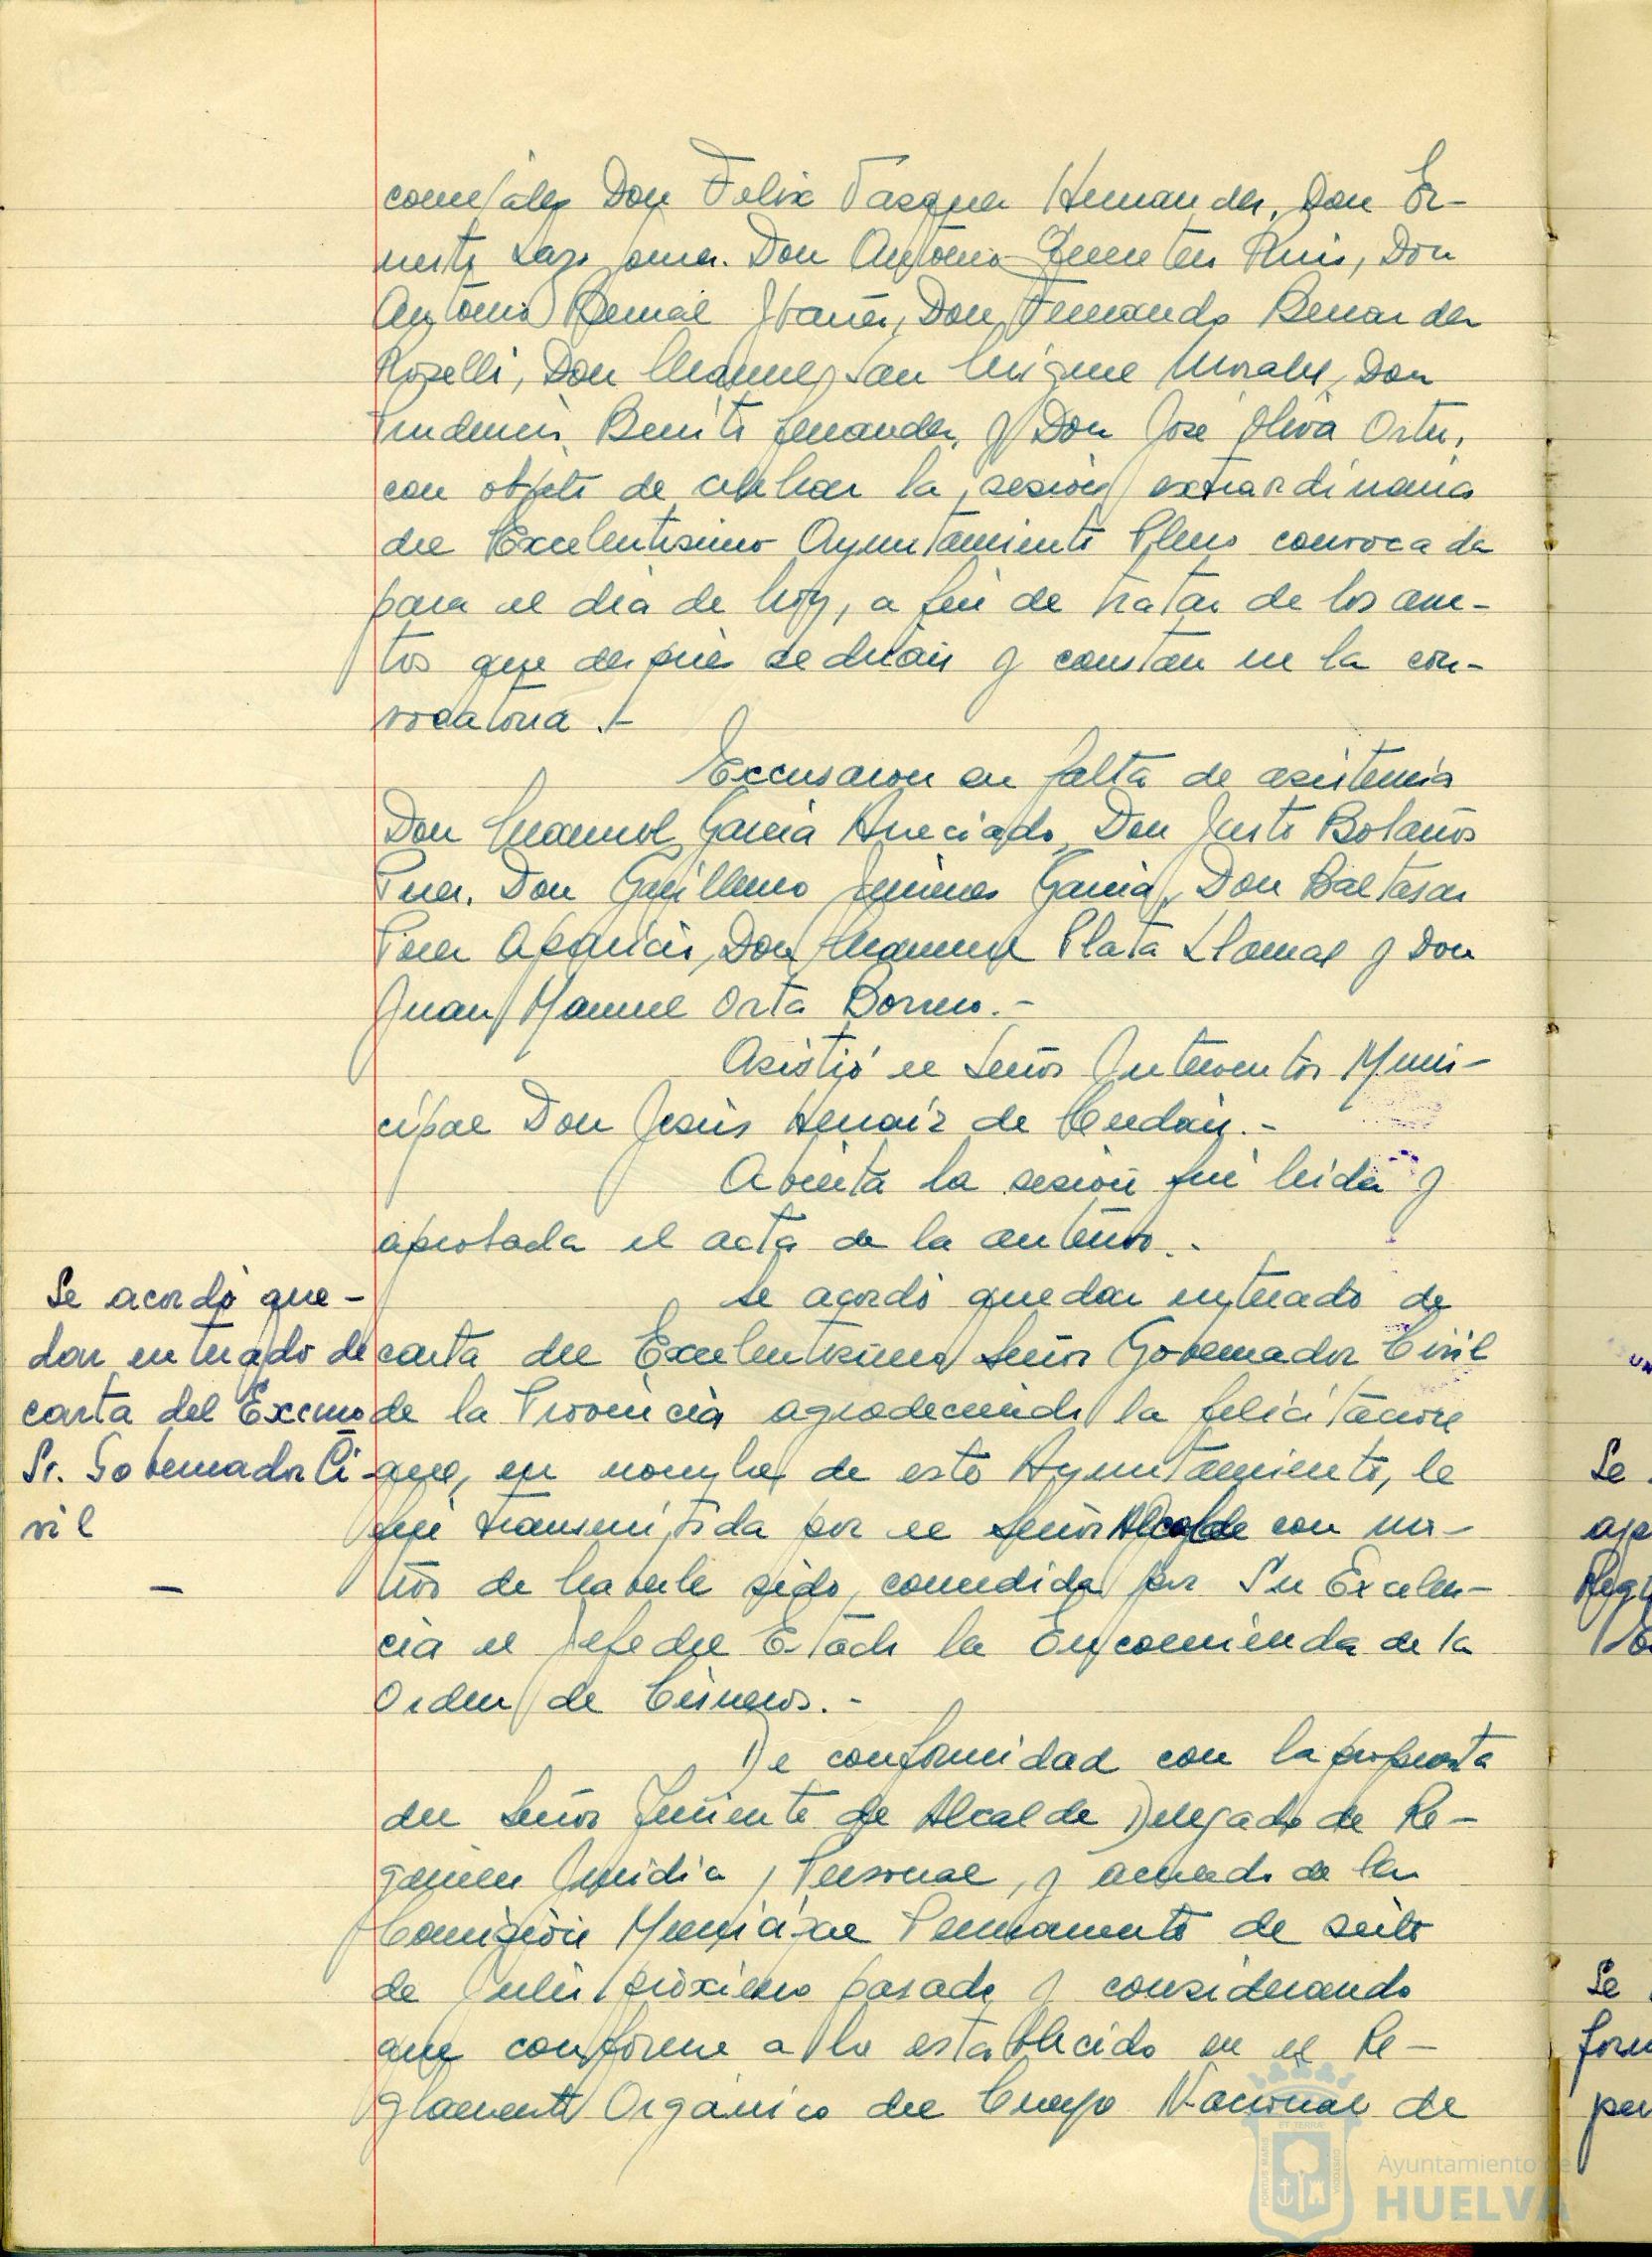 concejales Don Felix Vasquez Hernandez, Don Er-
nesto Lazo Gomez. Don Antonio Fuentes Ruiz, Don
Antonio Bernal Ibañez, Don Fernando Benardez
Roselli, Don Manuel San Miguel Morales, Don
Prudencio Benito Fernandez, y Don José Oliva Ortiz,
con objeto de celebrar la sesión extraordinaria
del Excelentisimo Ayuntamiento Pleno convocada
para el dia de hoy, a fin de tratar de los asun-
tos que después se dirán y constan en la con-
vocatoria.-
Excusaron su falta de asistencia
Don Manuel Garcia Don Justo Bolaños
Perez. Don Guillermo Jimenez Garcia, Don Baltasar
Perez Aparicio, Don Manuel Plata Llamas y Don
Juan Manuel Orta Borrero.-
Asistió el Señor Interventor Muni-
cipal Don Jesús Henaiz de Cerdan.-
Abierta la sesión fué leida y
aprobada el acta de la anterior.-
Se acordó quedar enterado de
carta del Excelentisimo Señor Gobernador Civil
de la Provincia agradeciendo la felicitación
que, en nombre de este Ayuntamiento, le
fué transmitida por el Señor Alcalde con mo-
tivo de haberle sido concedida por Su Excelen-
cia el Jefe del Estado la Encomienda de la
Orden de Cisneros.-
De conformidad con la propuesta
del Señor Teniente de Alcalde Delegado de Re-
gimen Juridico y Personal, y acuerdo de la
Comisión Municipal Permanente de seis
de Julio próximo pasado y considerando
que conforme a lo establecido en el Re-
glamento Orgánico del Cuerpo Nacional de
Se acordó que-
dar enterado de
carta del Excmo
Sr. Gobernador Ci-
vil
Se
Se
Ayuntamiento de
HUELVA